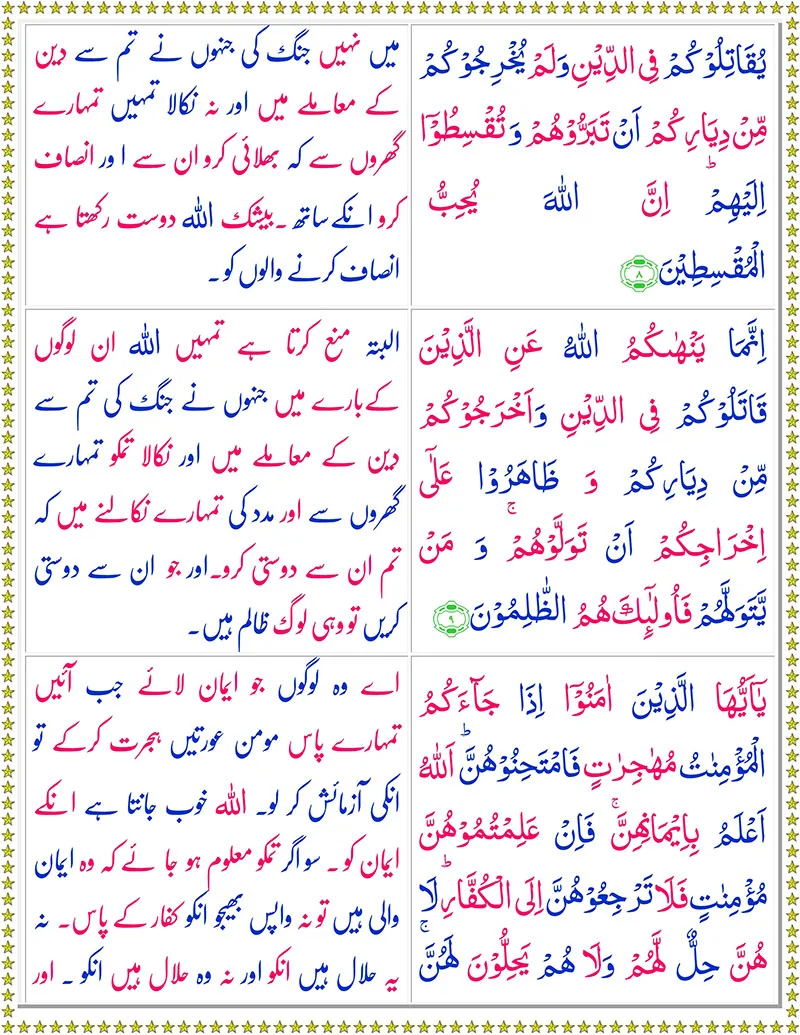 يُقَاتِلُوْكُمْ فِى الدِّيْنِ وَلَمْ يُخْرِجُوْكُمْ
مِّنْ دِيَارِكُمْ اَنْ تَبَرُّوْهُمْ وَ تُقْسِطُوْۤا
اِلَيْهِمْ ؕ اِنَّ اللّٰهَ يُحِبُّ
الْمُقْسِطِيْنَ ۸
میں نہیں جنگ کی جنہوں نے تم سے دین
کے معاملے میں اور نہ نکالا تمہیں تمہارے
گھروں سے کہ بھلائی کرو ان سے ا ور انصاف
کرو انکے ساتھ ۔ بیشک اللہ دوست رکھتا ہے
انصاف کرنے والوں کو ۔
اِنَّمَا يَنْهٰىكُمُ اللّٰهُ عَنِ الَّذِيْنَ
قَاتَلُوْكُمْ فِى الدِّيْنِ وَاَخْرَجُوْكُمْ
مِّنْ دِيَارِكُمْ وَ ظَاهَرُوْا عَلٰٓى
اِخْرَاجِكُمْ اَنْ تَوَلَّوْهُمْ ۚ وَ مَنْ
يَّتَوَلَّهُمْ فَاُولٰٓٮِٕكَ هُمُ الظّٰلِمُوْنَ ۹
البتہ منع کرتا ہے تمہیں اللہ ان لوگوں
کے بارے میں جنہوں نے جنگ کی تم سے
دین کے معاملے میں اور نکالا تمکو تمہارے
گھروں سے اور مدد کی تمہارے نکالنے میں کہ
تم ان سے دوستی کرو۔ اور جو ان سے دوستی
کریں تو وہی لوگ ظالم ہیں۔
يٰۤاَيُّهَا الَّذِيْنَ اٰمَنُوْۤا اِذَا جَآءَكُمُ
الْمُؤْمِنٰتُ مُهٰجِرٰتٍ فَامْتَحِنُوْهُنَّ ؕ اَللّٰهُ
اَعْلَمُ بِاِيْمَانِهِنَّ ۚ فَاِنْ عَلِمْتُمُوْهُنَّ
مُؤْمِنٰتٍ فَلَا تَرْجِعُوْهُنَّ اِلَى الْكُفَّارِ ؕ لَا
هُنَّ حِلٌّ لَّهُمْ وَلَا هُمْ يَحِلُّوْنَ لَهُنَّ ۚ
اے وہ لوگوں جو ایمان لائے جب آئیں
تمہارے پاس مومن عورتیں ہجرت کرکے تو
انکی آزمائش کر لو۔ اللہ خوب جانتا ہے انکے
ایمان کو ۔ سو اگر تمکو معلوم ہو جا ئے کہ وہ ایمان
والی ہیں تو نہ واپس بھیجو انکو کفار کے پاس۔ نہ
یہ حلال ہیں انکو اور نہ وہ حلال ہیں انکو ۔ اور